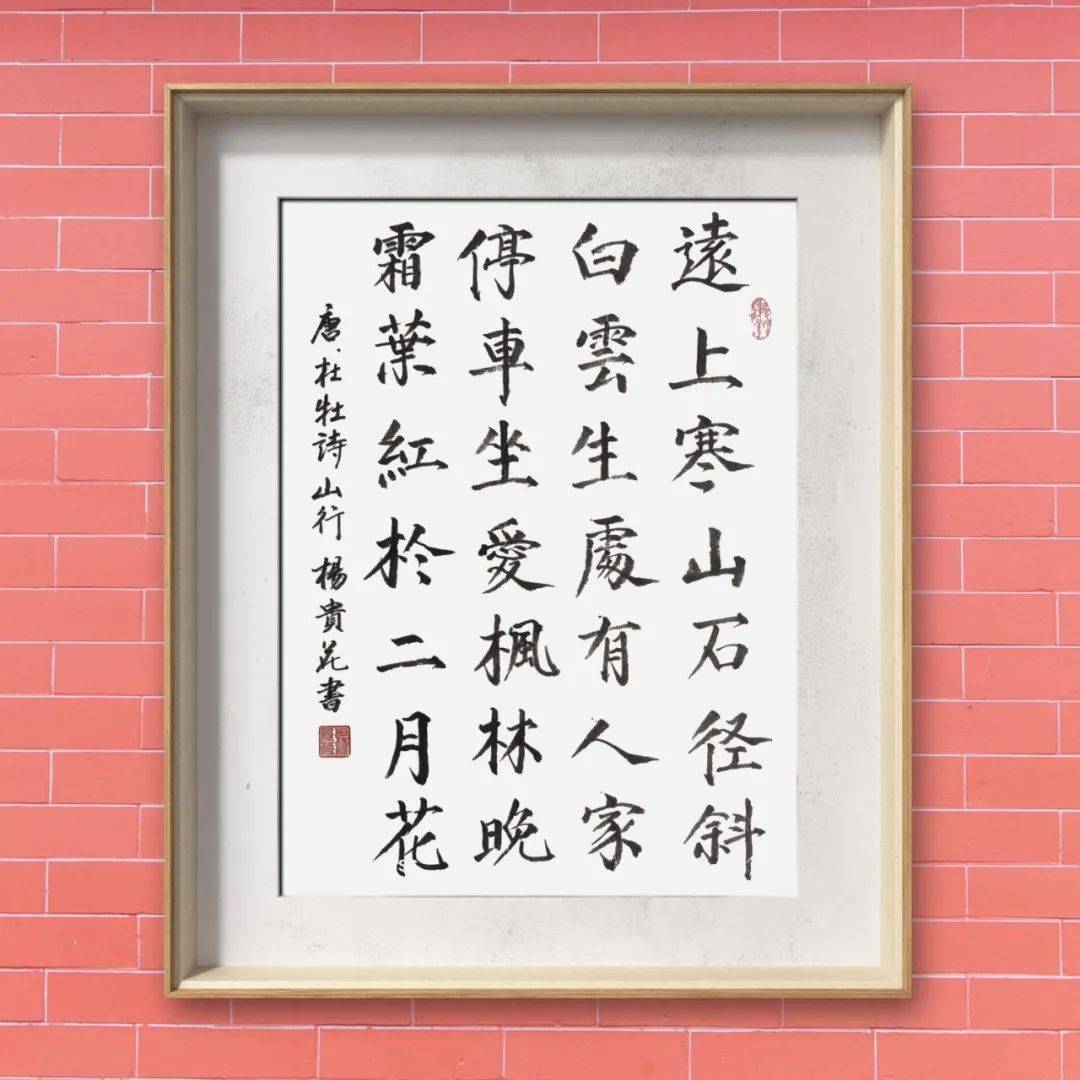 遠上寒山石径斜
白雲生處有人家
停車坐愛楓林晚
霜葉紅於二月花
唐、杜牡詩山行 楊貴花書